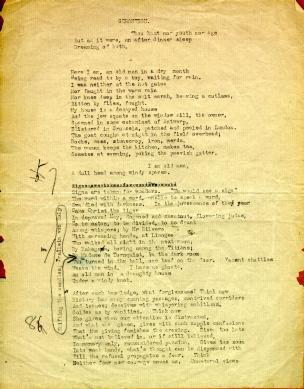 GERONTION.
Thou hast nor youth nor age
But as it were, an after dinner sleep
Dreaming of both.
Here I am, an old man in a dry month
Being read to by a boy, waiting for rain.
I was neither at the hot gates
Nor fought in the warm rain
Nor knee deep in the salt marsh, heaving a cutlass,
Bitten by flies, fought.
My house is a decayed house
And the jew squats on the window sill, the owner,
Spawned in some estaminet of Antwerp,
Blistered in Brussels, patched and peeled in London.
The goat coughs at night in the field overhead;
Rocks, moss, stonecrop, iron, merds.
The woman keeps the kitchen, makes tea,
Sneezes at evening, poking the peevish gutter.
I am old man,
A dull head among windy spaces.
Signs are taken for wonders. "We would see a sign"
The word within a word, unable to speak a word,
Swaddled with darkness. In the of the year
Came Christ the tiger
In depraved May, dogwood and chestnut, flowering judas,
To be eaten, to be divided, to be drunk
Among whispers; by Mr Silvero
With caressing hands, at Limoges
Who walked all night in the next room;
By Hakagawa, bowing among the Titians;
By Madame de Tornquist, in the dark room
Who turned in the hall, one hand on the door. Vacant shuttles
Weave the wind. I have no ghosts,
An old man in a draughty house
Under a windy knob.
After such knowledge, what forgiveness? Think now
History has many cunning passages, contrived corridors
And issues; deceives with whispering ambitions,
Guides us by vanities. Think now
She gives when our attention is distracted,
And what she gives, gives with such supple confusions
That the giving famishes the craving. Gives too late
What's not believed in, or if still believed,
In memory only, reconsidered passion. Gives too soon
Into weak hands, what's thought can be dispensed with
Till the refusal propagates a fear. Think
Neither fear nor courage saves us. Unnatural vices